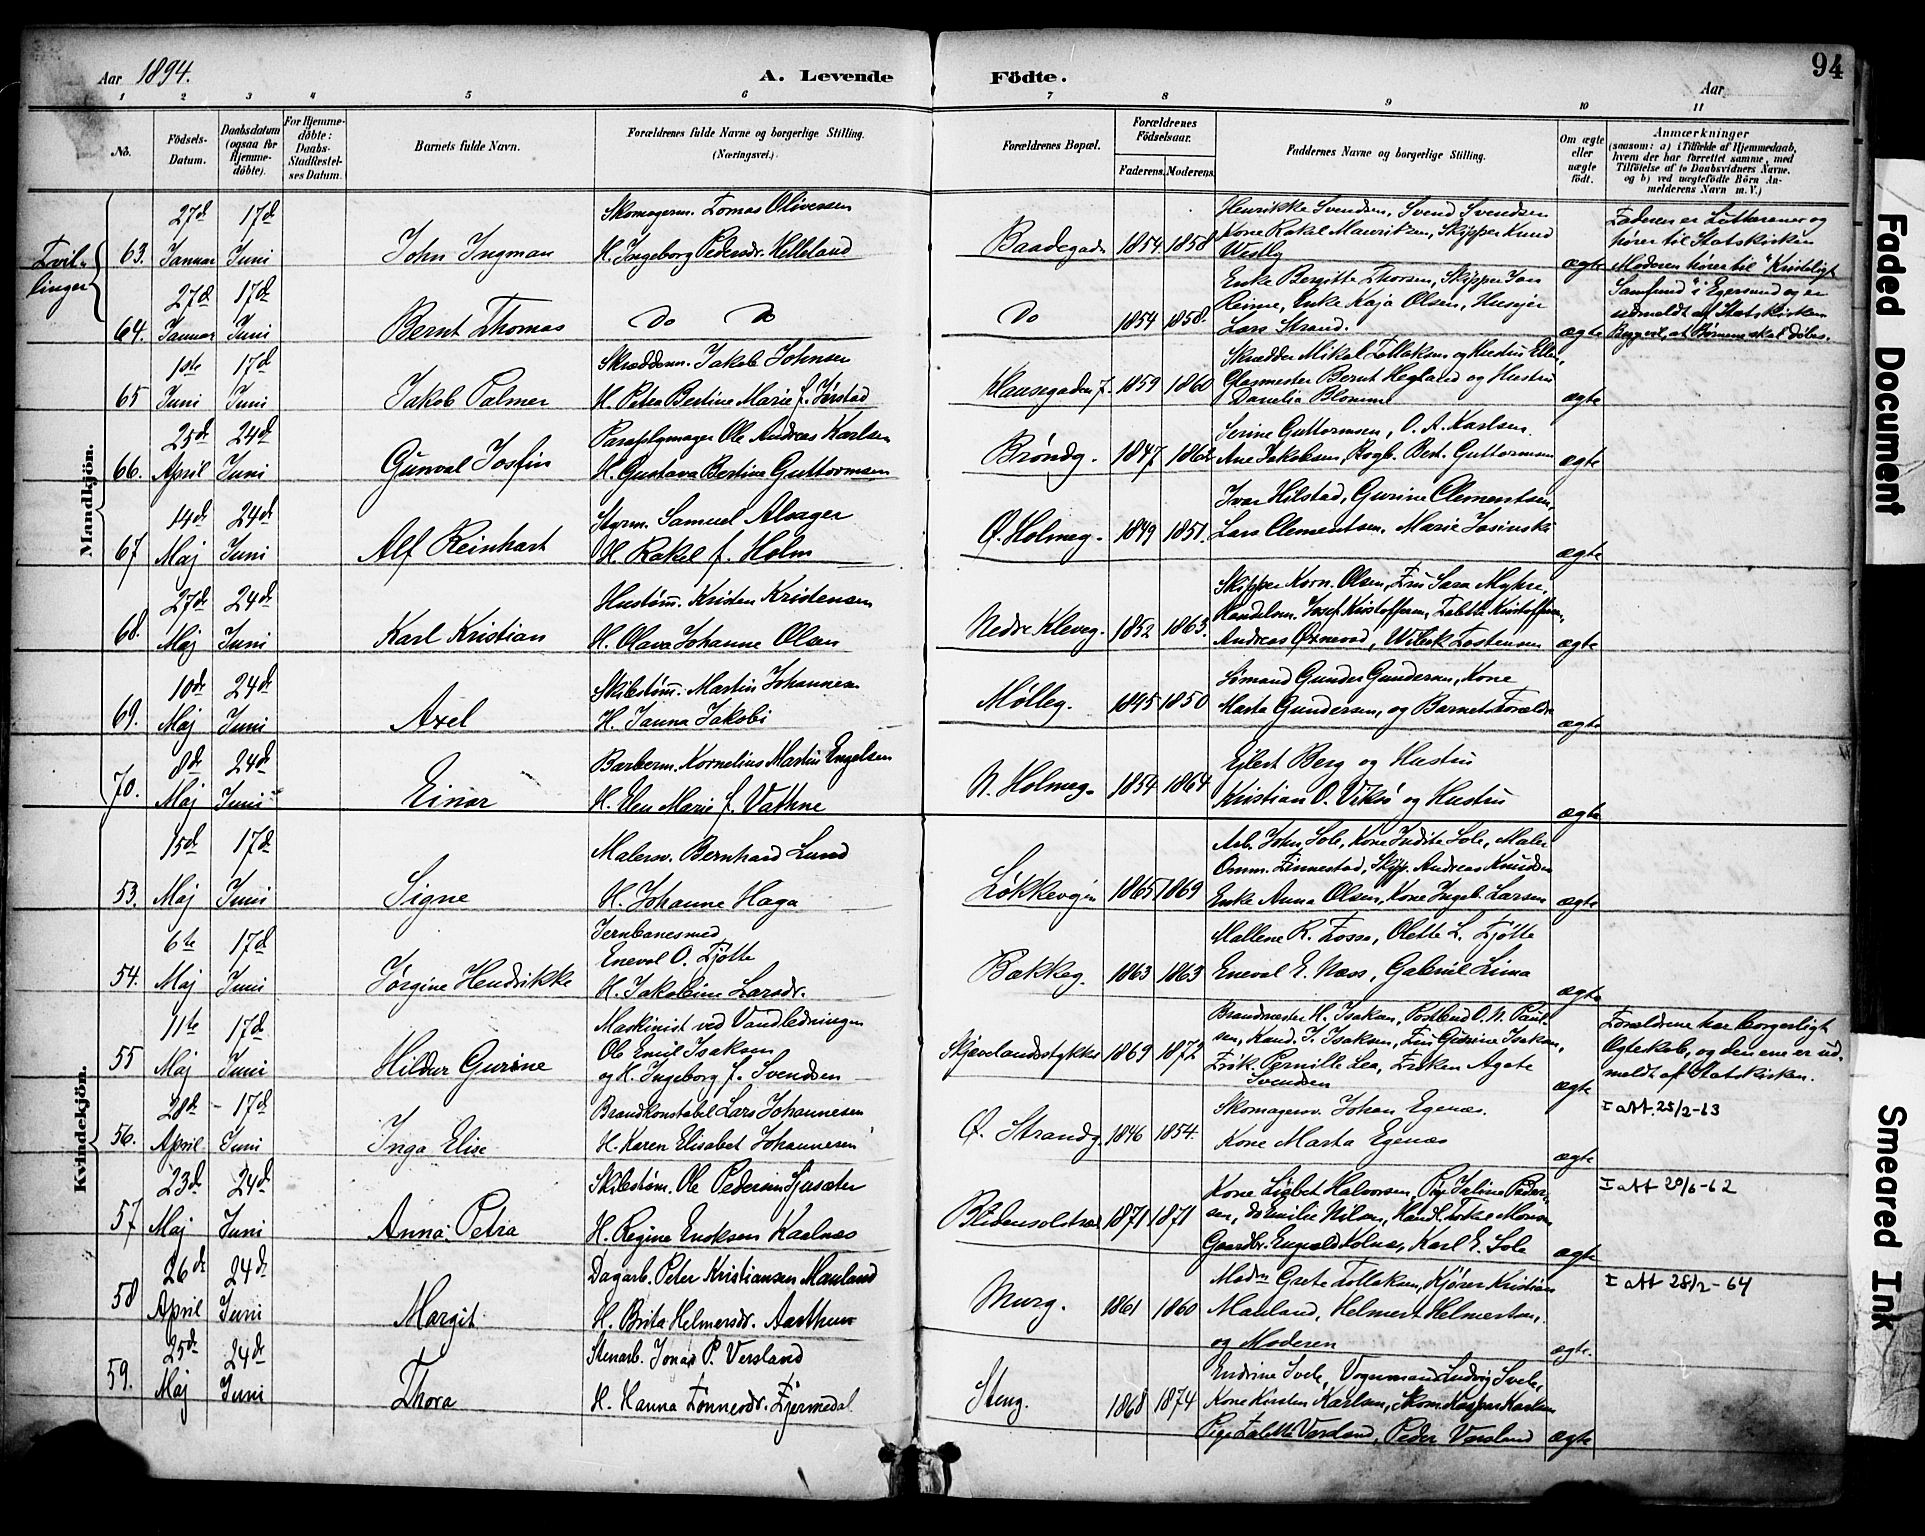 94
Aar 1894.
A. Levende Födte.
Aar
1 2 3 4 5 6 7 8 9 10 11
No.
Födsels-Datum.
Daabsdatum (ogsaa for Hjemme-döbte).
For Hjemme-döbte: Daabs-Stadfæstel-ses Datum.
Barnets fulde Navn.
Forældrenes fulde Navne og borgerlige Stilling. (Næringsvei.)
Forældrenes Bopæl.
Forældrenes Födselsaar.
Faderens. Moderens.
Faddernes Navne og borgerlige Stilling.
Om ægte eller uægte født.
Anmærkninger
(saasom: a) i Tilfælde af Hjemmedaab, hvem der har forrettet samme, med Tilföielse af to Daabsvidners Navne, og b) ved uægtefödte Börn An-melderens Navn m. V.)
Mandkjön.
Tvil-
linger
63. 27d Januar 17d Juni
John Ingman
Skomagerm. Tomas Olivessen
H. Ingeborg Pedersdr. Helleland
Baadegade 1854 1858
Henrikke Svendsen, Svend Svendsen
Kone Rakel Mauritzen, Skipper Knud
Vestly
ægte
Faderen er Lutheraner og
hører til Statskirken
Moderen hører til "Kristeligt
Samfund" i Egersund og er
udmeldt af Statskirken
Begge vil, at Børnene skal døbes.
64. 27d Januar 17d Juni
Bernt Thomas
Do Do
Do 1854 1858.
Enke Bergitte Thorsen, Skipper Jan
Reime, Enke Kaja Olsen, Husejer
Lars Strand.
ægte
65 1ste Juni 17d Juni
Jakob Palmer
Skrædderm. Jakob Johnsen
H. Petra Bertine Marie f. Jørstad
1859 1860
Skrædder Mikal Tollaksen og Hustru Ellen,
Glasmester Bernt Hegland og Hustru
Danelia Blomme
ægte
66. 25d April 24d Juni
Gunval Josfin
Paraplymager Ole Andreas Karlsen
H. Gustava Bertine Guttormsen
Brøndg. 1847 1862
Serine Guttormsen, O. A. Karlsen.
Ane Jakobsen, Bogb. Bert. Guttormsen
ægte
67 14d Maj 24d Juni
Alf Reinhart
Styrm. Samuel Alsager
H. Rakel f. Holm
Ø. Holmeg. 1849 1851.
Ivar Hilstad, Gurine Clementsen,
Lars Clementsen. Marie Josinski
ægte
68. 27d Maj 24d Juni
Karl Kristian
Hustøm. Kristen Kristensen
H. Olava Johanne Olsen
Nedre Kleveg. 1852 1863.
Skipper Korn. Olsen, Fru Sara Myhre,
Handelsm. Josef Kristoffersen, Tabitha Kristoffersen,
Andreas Øxnevad, Vibeke Tostensen
ægte
69. 10d Maj 24d Juni
Axel
Skibstøm. Martin Johannesen
H. Janna Jakobi
Mølleg. 1845 1850
Sømand Gunder Gundersen, Kone
Marta Gundersen, og Barnets Forældre
ægte
70. 8d Maj 24d Juni
Einar
Barberm. Kornelius Martin Engelsen
H. Elen Marie f. Vathne
N. Holmeg. 1854 1864
Eilert Berg og Hustru
Kristian O. Viksø og Hustru
ægte
Kvindekjön.
53. 15d Maj 17d Juni
Signe
Malersv. Bernhard Lund
H. Johanne Haga
Løkkevejen 1865 1869
Arb. John Sole, Kone Indite Sole, Maler
Omm. Finnestad, Skipp. Andreas Knudsen
Enke Anna Olsen, Kone Ingeb. Larsen
ægte
54. 6te Maj 17d Juni
Jørgine Hendrikke
Jernbanesmed
Eneval O. Fjøtte
H. Jakobine Larsdr.
Bakkeg. 1863 1863
Mallene R. Fosse, Olette L. Fjøtte
Eneval E. Næss, Gabriel Lima
ægte
55 11te Maj 17d Juni
Hildur Gurine
Maskinist ved Vandledningen
Ole Emil Isaksen
og H. Ingeborg f. Svendsen
Skjævelandsstykket 1869 1872
Brandmester H. Isaksen, Postbud O. N. Paul-
sen, Kand. I. Isaksen, Fru Gurine Isaksen,
Frøk. Pernille Lea, Frøken Agate
Svendsen
ægte
Forældrene har borgerligt
Ægteskab, og den ene er ud-
meldt af Statskirken.
56. 28d April 17d Juni
Inga Elise
Brandkonstabel Lars Johannesen
H. Karen Elisabet Johannesen
Ø. Strandg 1846 1854.
Skomagersv. Johan Egenæs.
Kone Marta Egenæs
ægte
I att. 25/2-63
57 23d Maj 24d Juni
Anna Petra
Skibstøm. Ole Pedersen Sjusæter
H. Regine Enoksen Kaalnæs
1871 1871
Kone Lisbet Halvorsen, Pige Taline Peder-
sen, do Emilie Nilsen,
Karl E. Sole
ægte
I att 20/6-62
58 26d April 24d Juni
Margit
Dagarb. Peter Kristiansen Mauland
H. Brita Helmersdr. Aarthun
Murg. 1861 1860
Grete Tollaksen, Kjører Kristian
Mauland, Helmert Helmertsen,
og Moderen
ægte.
I att 28/2-64
59. 25d Maj 24d Juni
Thora
Stenarb. Jonas P. Versland
H. Hanna Tønnesdr. Fjermedal
Steng. 1868 1874
Endrine Tvete, Vognmand Ludvig Tvete,
Kone Kirsten Karlsen, Skom. Kasper Karlsen
Pige Tabitha Versland, Peder Versland
ægte
Faded Document
Smeared Ink